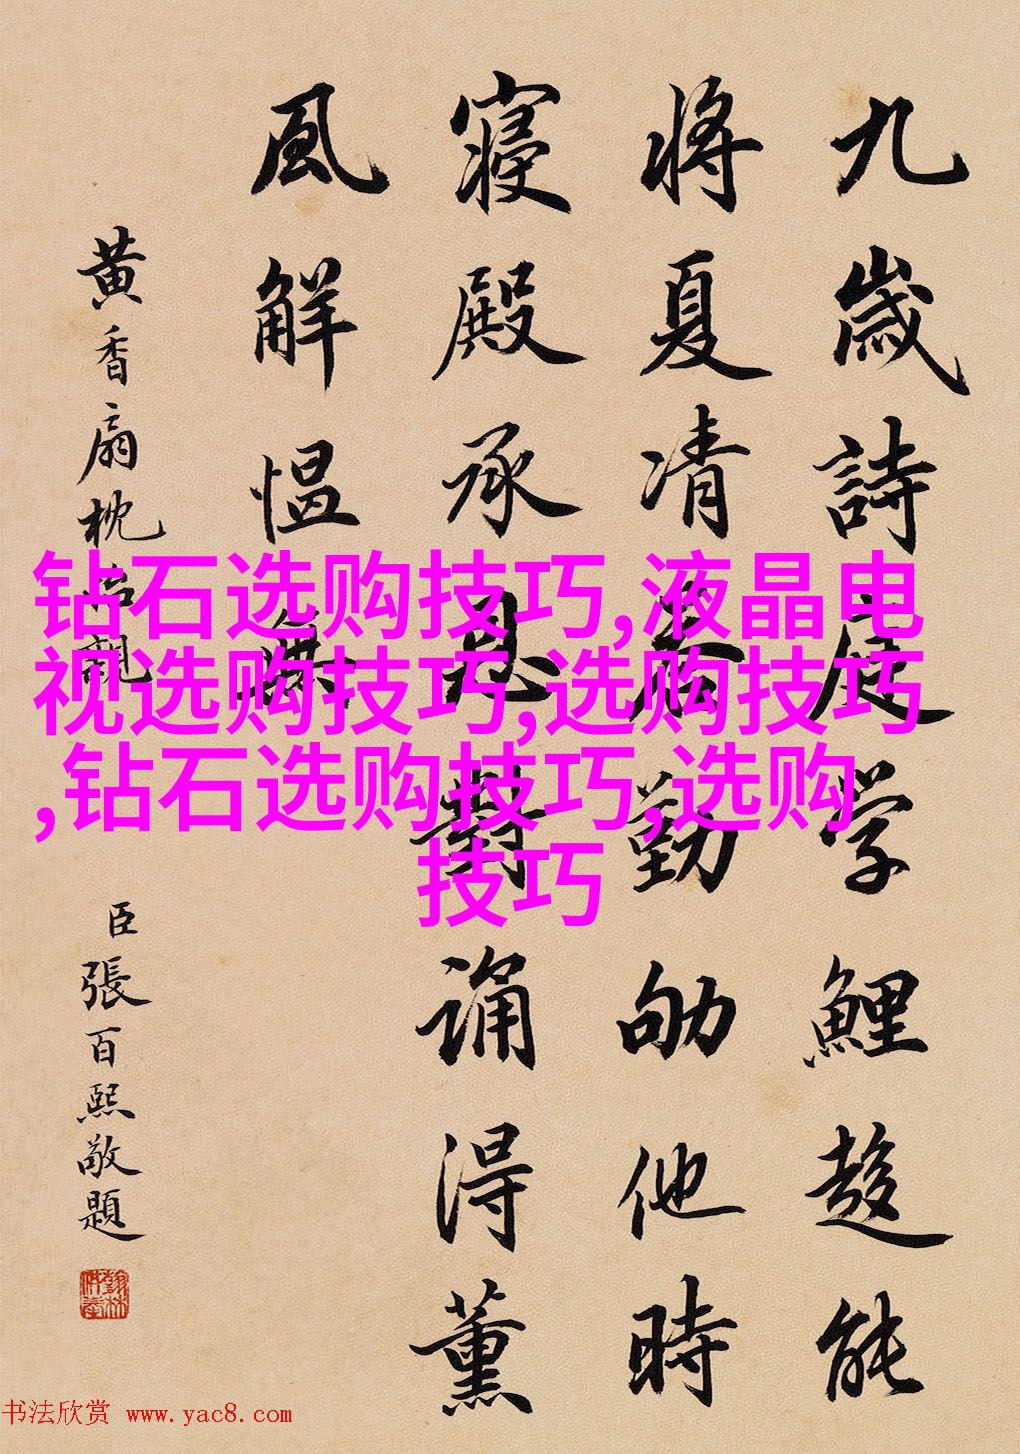 九歲詩庭学鯉趍能
將夏凊勤劬他時
寢殿承恩對誦得薰
風解愠無
黄香扇枕怡親
臣張百熙敬題
钻石选购技巧,液晶电
视选购技巧,选购技巧
,钻石选购技巧,选购
技巧
书法欣赏 www.yac8.com